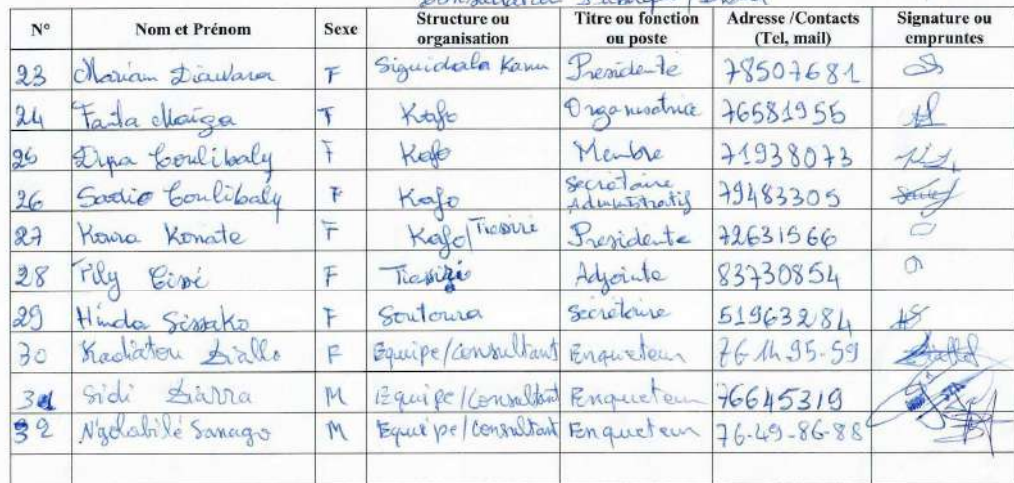 N° Nom et Prénom Sexe Structure ou organisation Titre ou fonction ou poste Adresse /Contacts (Tel, mail) Signature ou empruntes
23 Mariam Diawara F Siguidiala Kanu Presidente 78507681
24 Fanta Maïga F Kafo Organisatrice 76581955
25 Coulibaly F Kafo Membre 71938073
26 Sadio Coulibaly F Kafo Secretaire Administratif 79483305
27 Koura Konate F Kafo Presidente 72631566
28 Fily Cissé F Adjointe 83730854
29 Hinda Sissako F Soutoura Secrétaire 51963284
30 Kadiatou Diallo F Equipe/Consultant Enqueteur 76 14 95-59
31 Sidi Diarra M Equipe/Consultant Enqueteur 76645319
32 N'golobilé Sanago M Equipe/Consultant Enqueteur 76-49-86-88